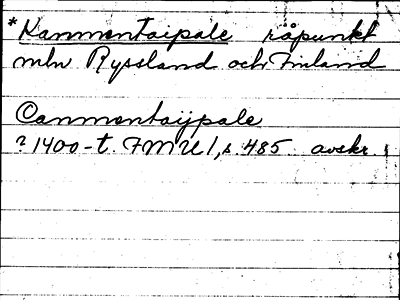 *Kammentaipale råpunkt
mln Ryssland och Finland
Cammentaijpale
? 1400-t. FMU 1, s. 485 avskr.